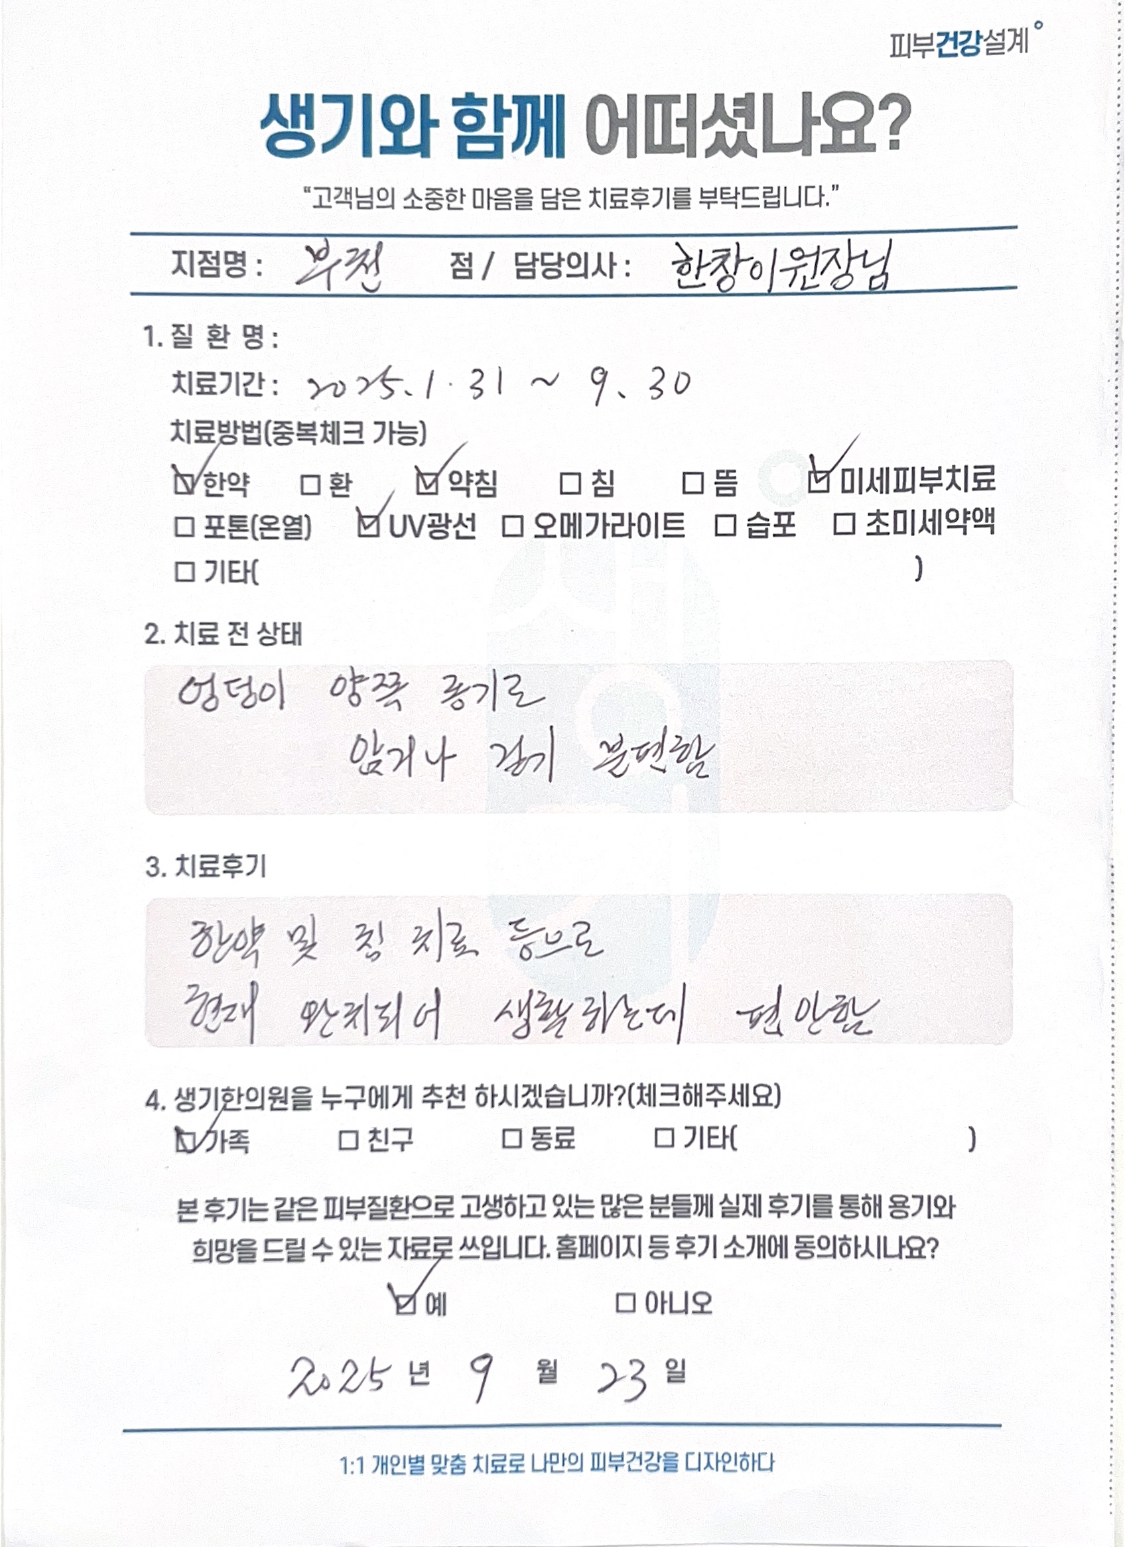 피부건강설계
생기와 함께 어떠셨나요?
"고객님의 소중한 마음을 담은 치료후기를 부탁드립니다."
지점명 : 부천 점 / 담당의사 : 한창이원장님
1. 질 환 명 :
치료기간 : 2025. 1. 31 ~ 9. 30
치료방법(중복체크 가능)
☑ 한약 □ 환 ☑ 약침 □ 침 □ 뜸 ☑ 미세피부치료
□ 포톤(온열) ☑ UV광선 □ 오메가라이트 □ 습포 □ 초미세약액
□ 기타( )
2. 치료 전 상태
엉덩이 양쪽 종기로
앉거나 걷기 불편함
3. 치료후기
한약 및 침 치료 등으로
현재 완치되어 생활하는데 편안함
4. 생기한의원을 누구에게 추천 하시겠습니까?(체크해주세요)
☑ 가족 □ 친구 □ 동료 □ 기타( )
본 후기는 같은 피부질환으로 고생하고 있는 많은 분들께 실제 후기를 통해 용기와
희망을 드릴 수 있는 자료로 쓰입니다. 홈페이지 등 후기 소개에 동의하시나요?
☑ 예 □ 아니오
2025 년 9 월 23 일
1:1 개인별 맞춤 치료로 나만의 피부건강을 디자인하다
생기